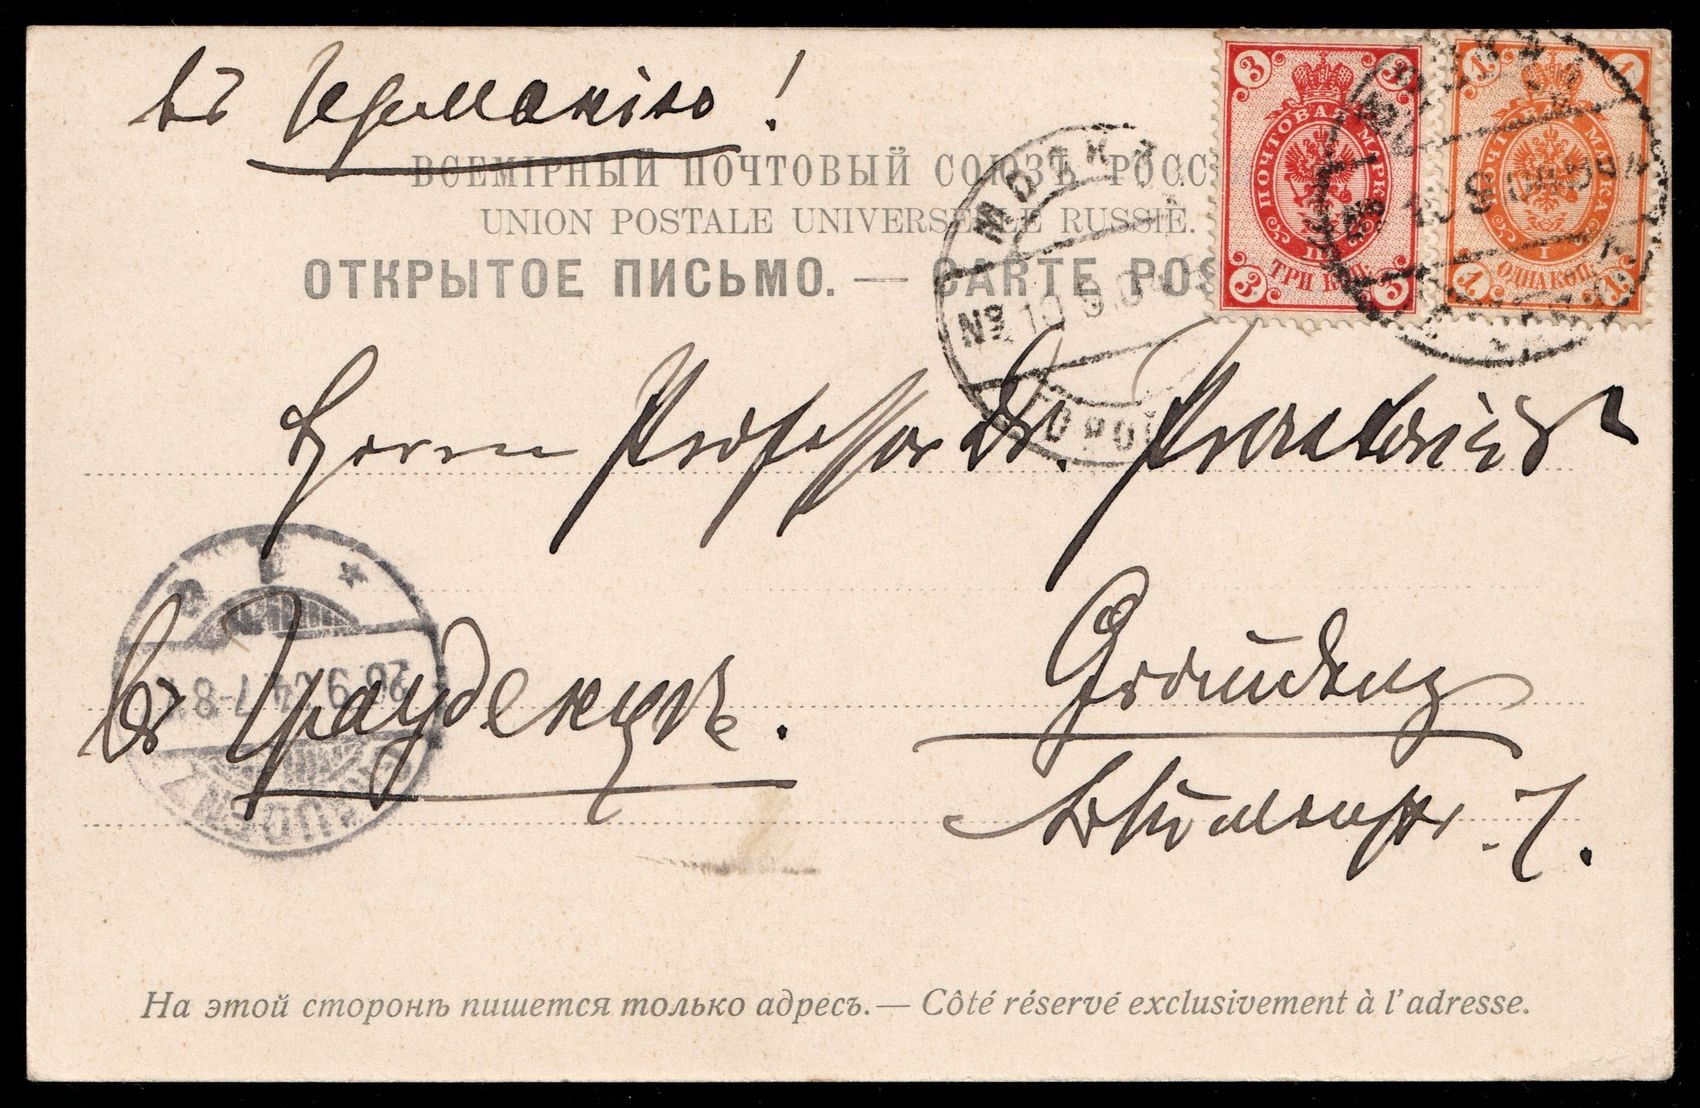 въ Германію!
ВСЕМІРНЫЙ ПОЧТОВЫЙ СОЮЗЪ. РОСС
UNION POSTALE UNIVERSELLE RUSSIE.
ОТКРЫТОЕ ПИСЬМО. — CARTE POS
3 3
ПОЧТОВАЯ МАРКА
ТРИ КОП.
3 3
1 1
ПОЧТОВАЯ МАРКА
1
ОДНА КОП.
1 1
МОСКВА
№ 10 9 04
Herrn Professor Dr.
въ Грауденцѣ.
Graudenz
7.
26.9.04. 7-8
GRAUDENZ
На этой сторонѣ пишется только адресъ. — Côté réservé exclusivement à l'adresse.